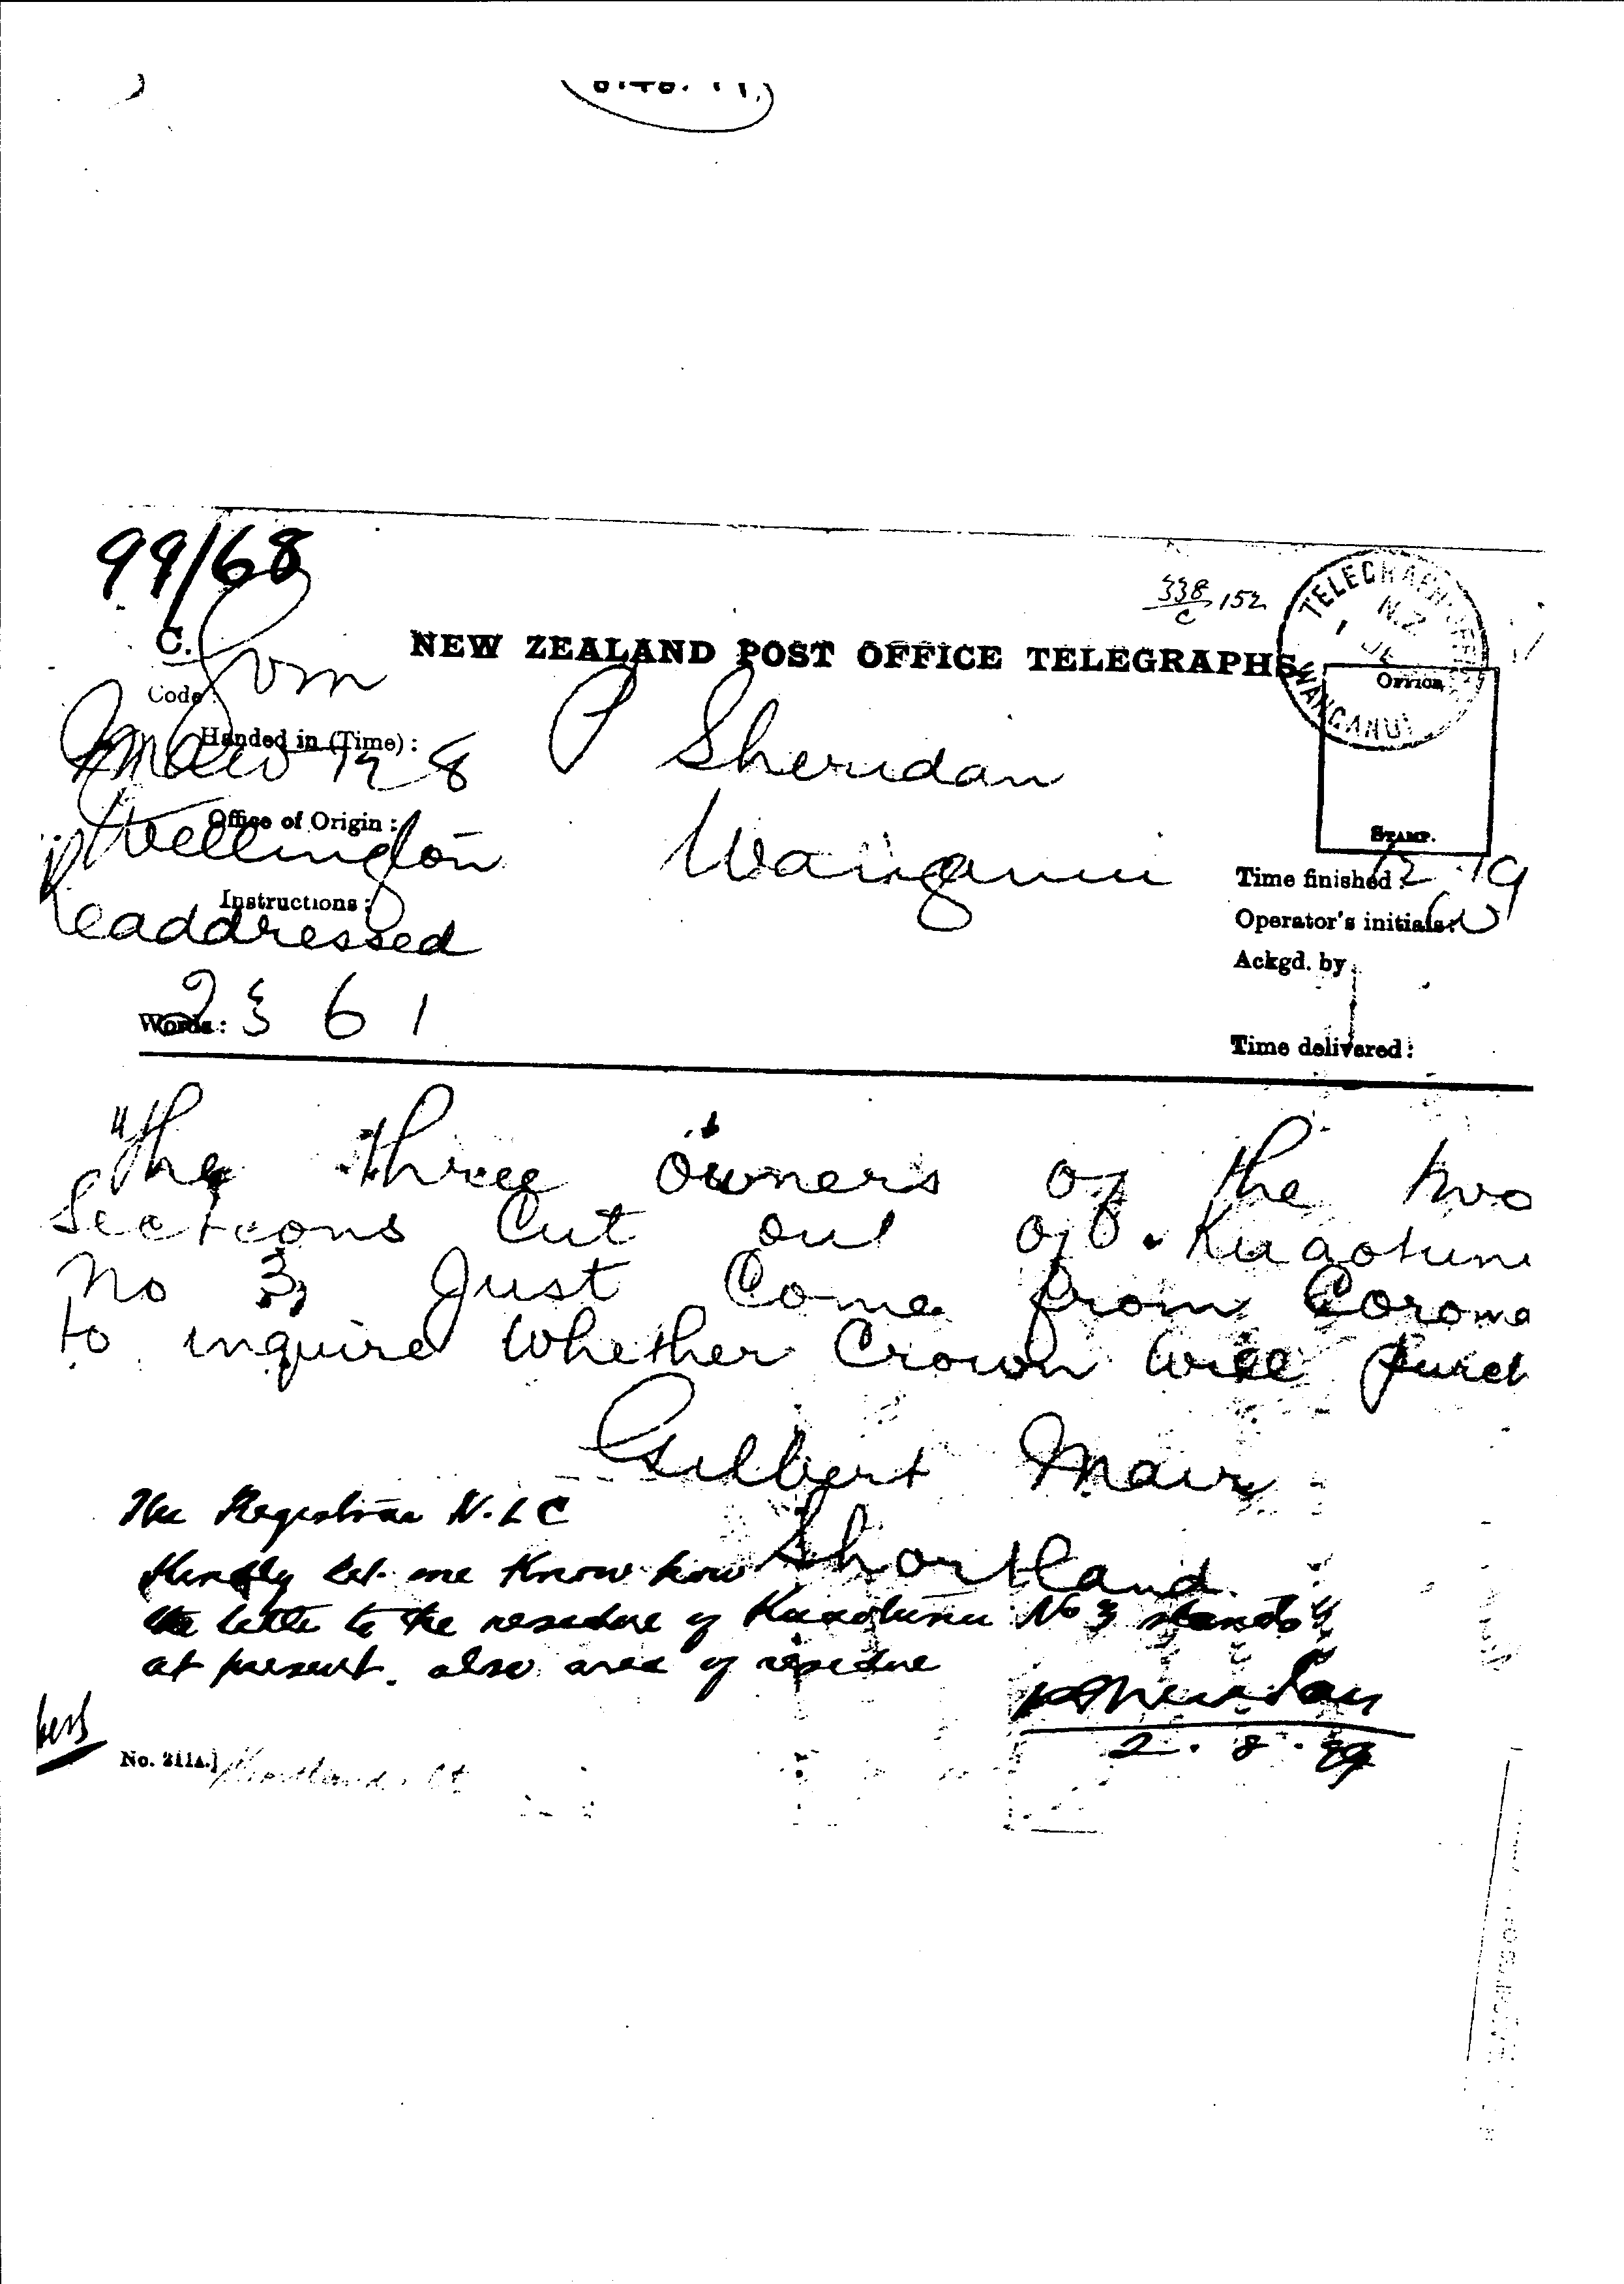 99/68
338/c 152
TELEGRAPH OFFICE
N.Z
WANGANUI
C.
NEW ZEALAND POST OFFICE TELEGRAPHS.
Code:
Office
Handed in (Time):
12 8
P Sheridan
Office of Origin:
Wellington
Wanganui
Stamp.
Time finished: 12 19
Instructions:
Readdressed
Operator's initials:
Ackgd. by
Words: 2 & 61
Time delivered:
"The three owners of the two
Sections Cut out of Kuaotunu
No 3 Just Come from Coroma
to inquire whether Crown will purch
Gilbert Mair
Shortland
The Registrar N.L C
Kindly let me know how
the title to the residue of Kuaotunu No 3 stands
at present. also area of residue
P Sheridan
2.8.99
No. 211A.]